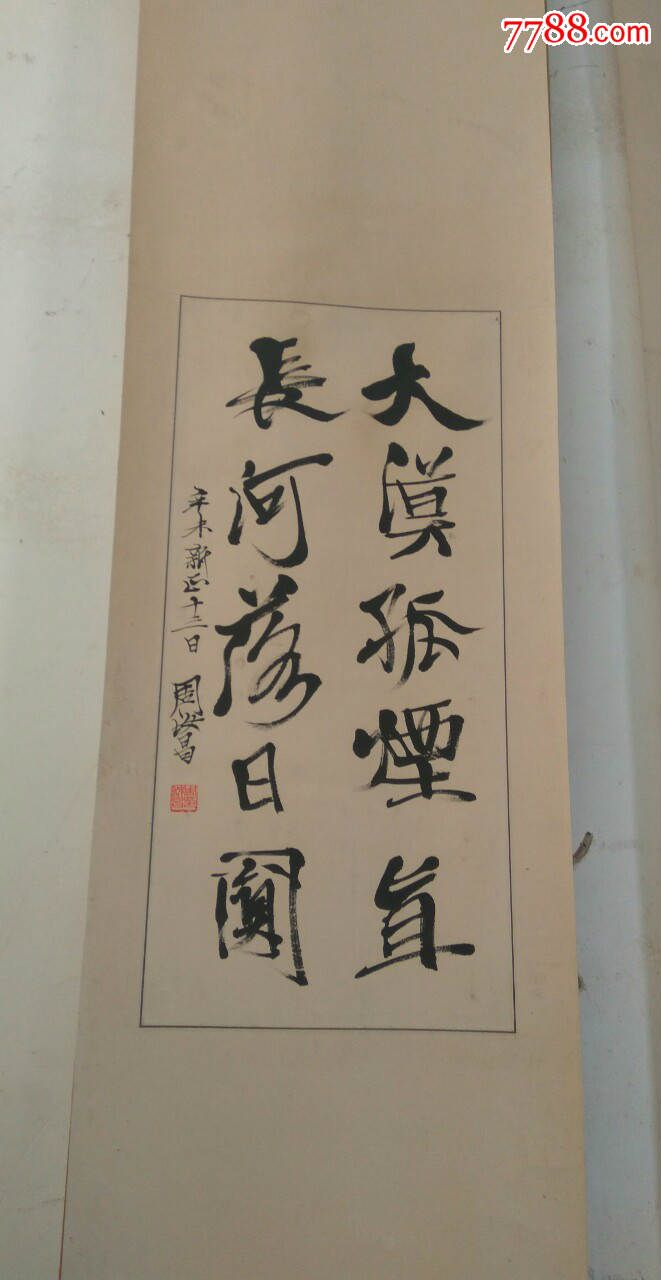 7788.com
大漠孤煙直
長河落日圓
辛未新正十二日 周